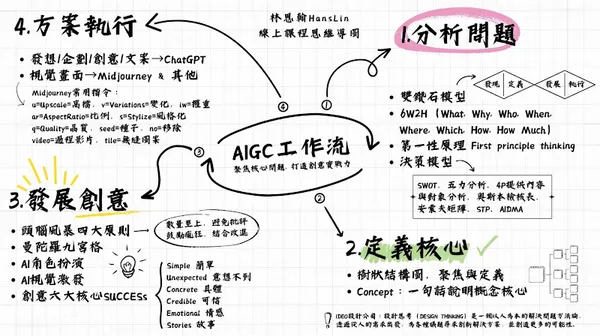 林思翰HansLin
線上課程思維導圖
AIGC工作流
聚焦核心問題，打造創意實戰力
①
②
③
④
1.分析問題
• 雙鑽石模型
發現 定義 發展 執行
• 6W2H (What, Why, Who, When
Where, Which, How, How Much)
• 第一性原理 First principle thinking
• 決策模型
SWOT、五力分析、4P提供內容
與對象分析、奧斯本檢核表、
安索夫矩陣、STP、AIDMA
2.定義核心
• 樹狀結構圖，聚焦與定義
• Concept：一句話說明概念核心
IDEO設計公司：設計思考 (DESIGN THINKING) 是一個以人為本的解決問題方法論，
透過從人的需求出發，為各種議題尋求創新解決方案，並創造更多的可能性。
3.發展創意
• 頭腦風暴四大原則
數量至上，避免批評
鼓勵瘋狂，結合改進
• 曼陀羅九宮格
• AI角色扮演
• AI視覺激發
• 創意六大核心SUCCESs
Simple 簡單
Unexpected 意想不到
Concrete 具體
Credible 可信
Emotional 情感
Stories 故事
4.方案執行
• 發想/企劃/創意/文案→ChatGPT
• 視覺畫面→Midjourney & 其他
Midjourney常用指令：
u=Upscale=高檔，v=Variations=變化，iw=權重
ar=AspectRatio=比例，s=Stylize=風格化
q=Quality=品質，seed=種子，no=移除
video=過程影片，tile=無縫圖案